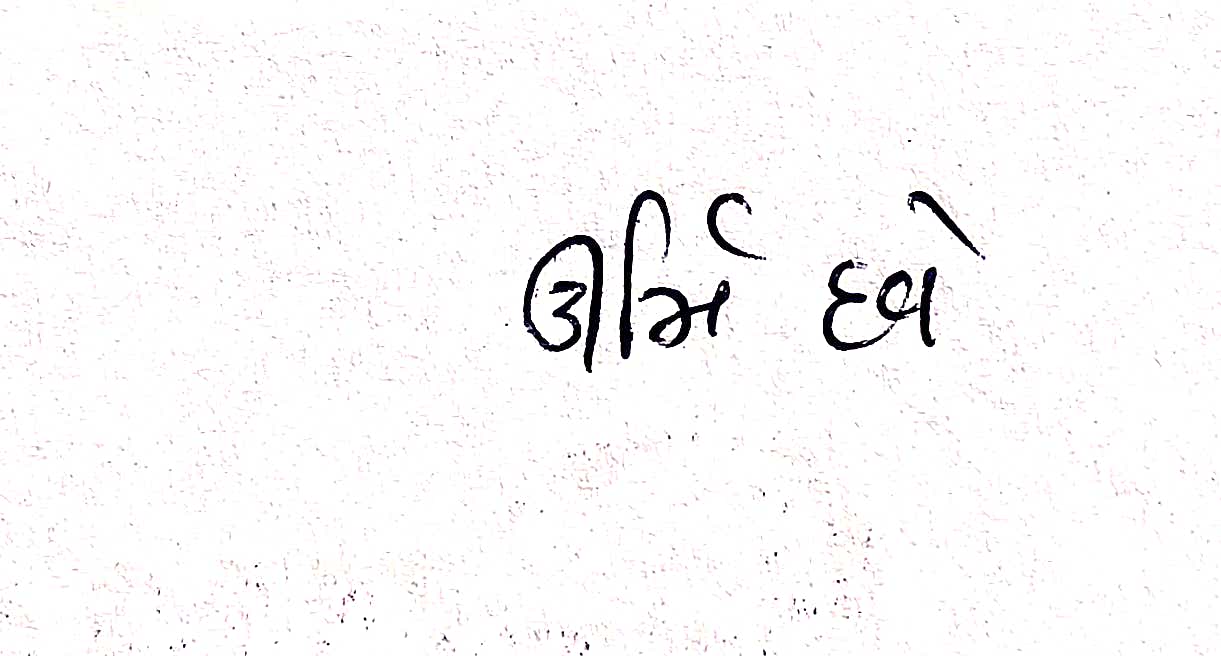 ઊર્મિ દવે